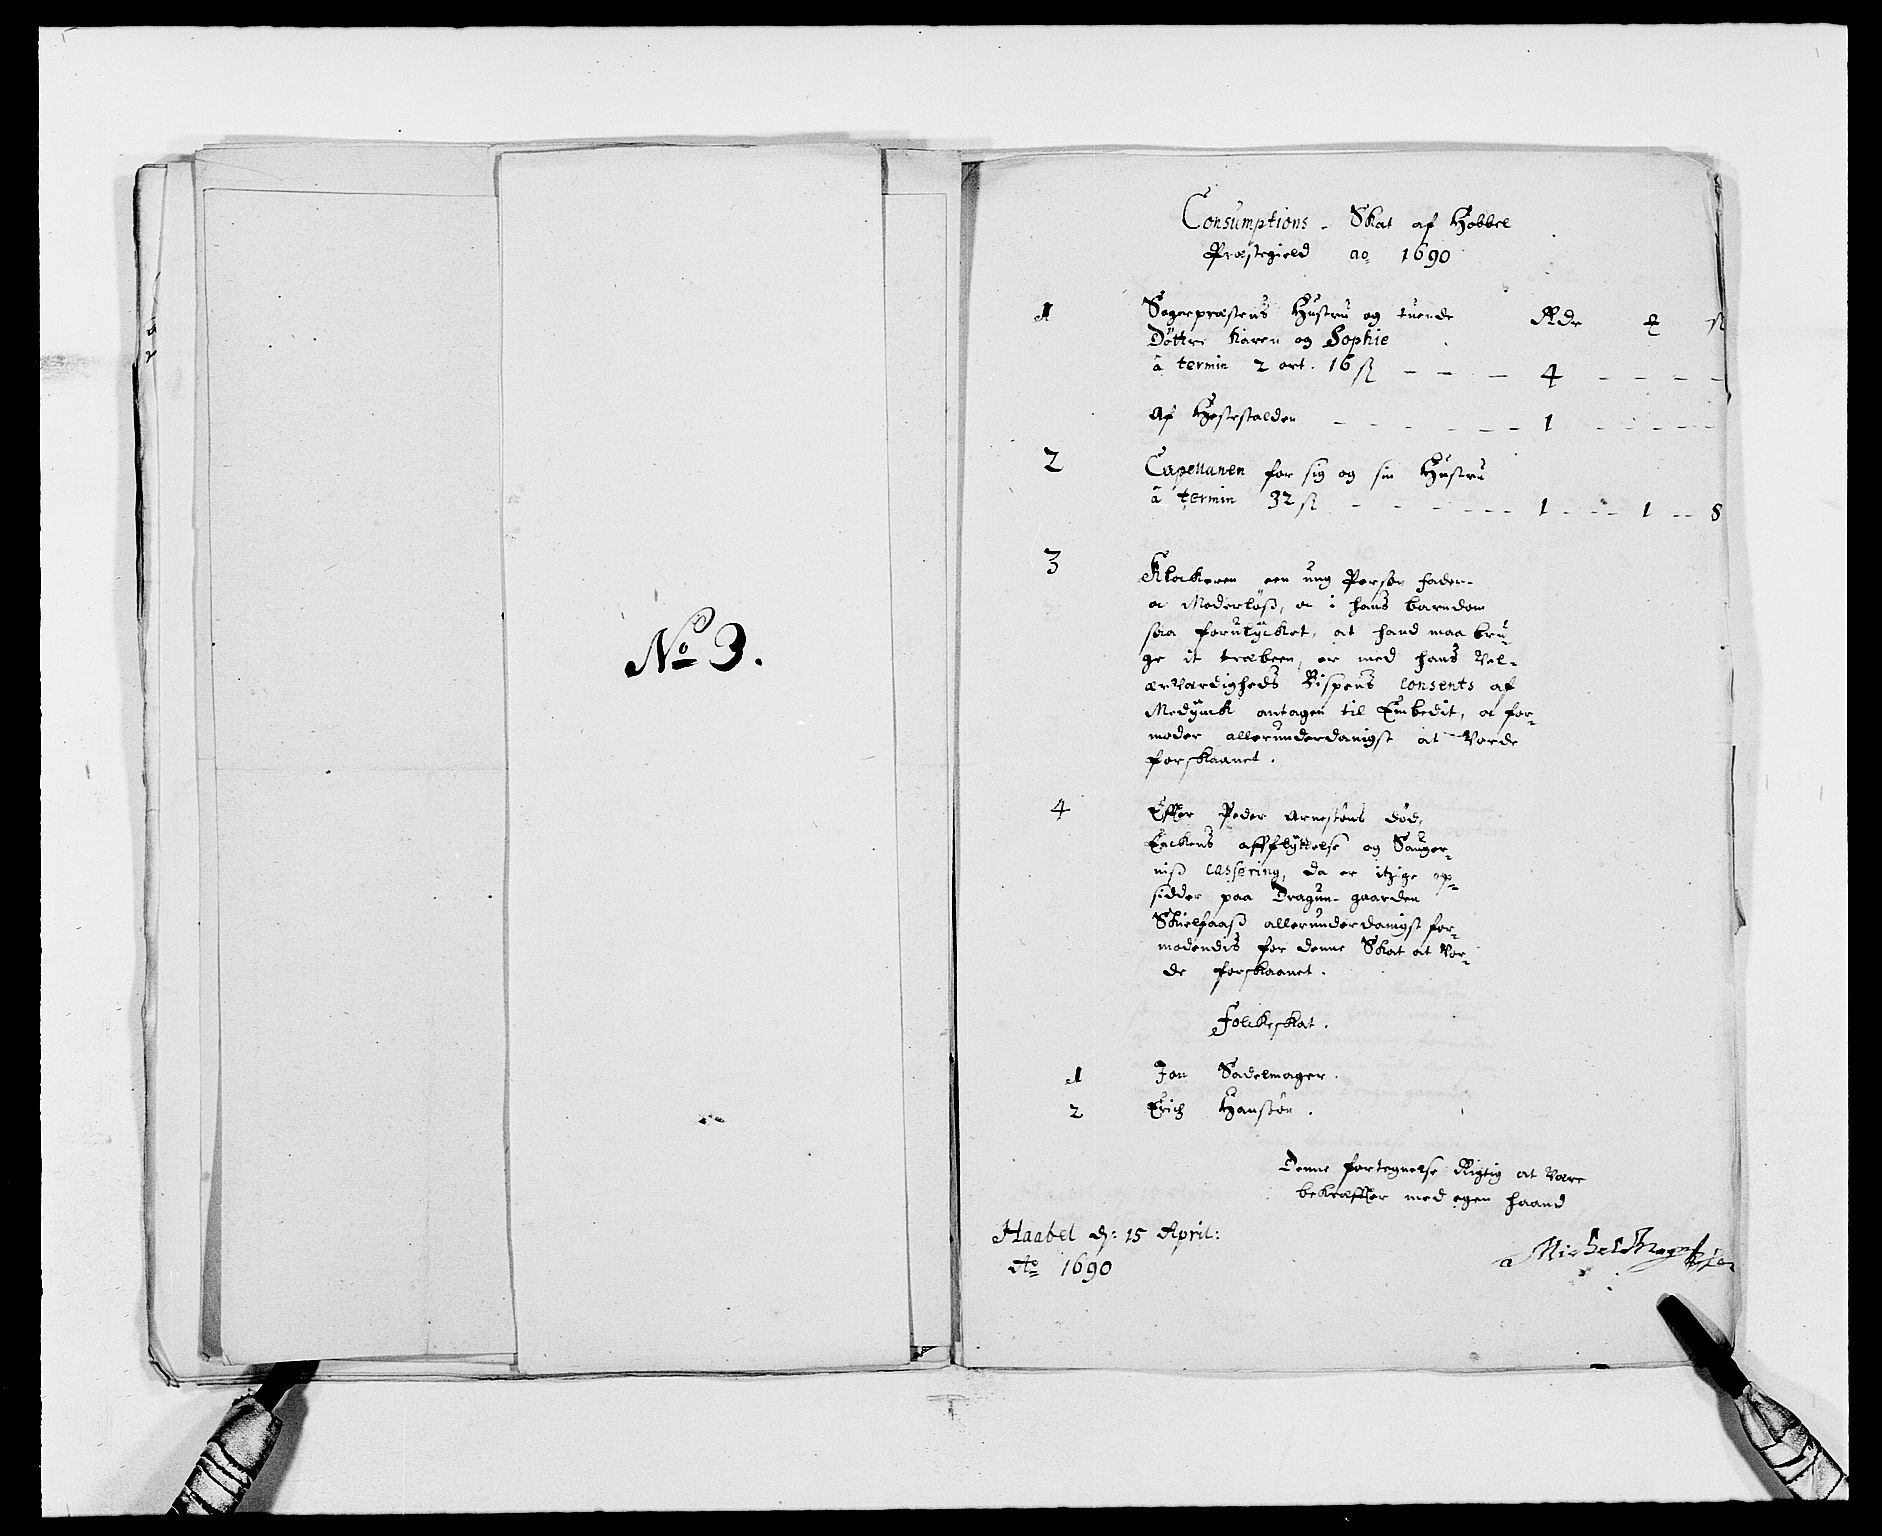 No 3.
Consumptions - Skat af Hobbel
Præstegield ao 1690
1 Sogneprestens Hustru og tuende Rdr ß
Döttre Karen og Sophie
à termin 2 ort. 16 ß - - - 4 - - - -
Af Hestestalden - - - - - - - 1 - - - - -
2 Capellanen for sig og sin Hustru
à termin 32 ß - - - - - - 1 - - - 1 - - 8
3 Klockeren een ung Person fader-
oc Moderlöß, oc i hans barndom
saa forulycket, at hand maa bru-
ge it træbeen, er med hans Vel-
ærværdigheds Bispens consents af
antagen til Embedit, oc for-
moder allerunderdanigst at Vorde
forskaanet.
4 Efter Peder Arnesöns död,
Enckens affflyttelse og
cassering, da er itzige op-
sidder paa Dragun-gaarden
allerunderdanigst for-
modendis for denne Skat at Vor-
de forskaanet.
Folckeskat.
1 Jon Sadelmager.
2 Erich Hansön.
Denne fortegnelse Rigtig at Være
bekræffter med egen haand
Haabel d: 15 April:
Ao 1690